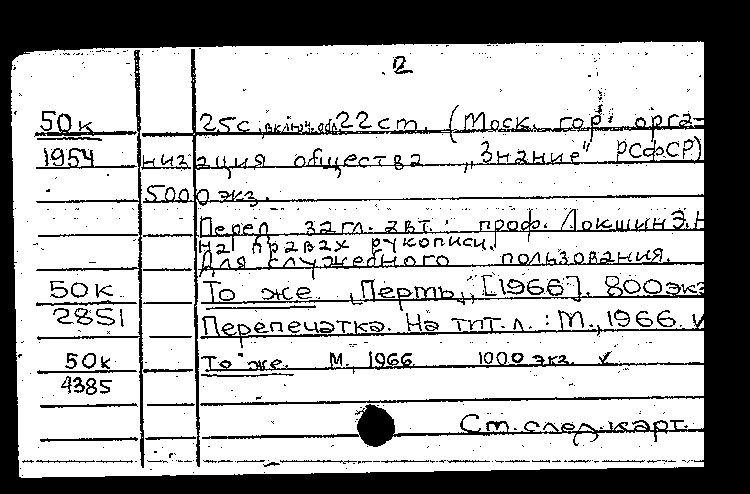 2
50к 25с. включ. обл. 22 ст. (Моск. гор. орга-
1954 низация общества „Знание" РСФСР)
5000 экз.
Перед загл. авт.: проф. Локшин Э.
На правах рукописи.
Для служебного пользования.
50к То же „Пермь„ [1966]. 800 экз
2851 Перепечатка. На тит. л.: М., 1966. ✓
50к То же. М., 1966. 1000 экз. ✓
4385
Ст. след. карт.